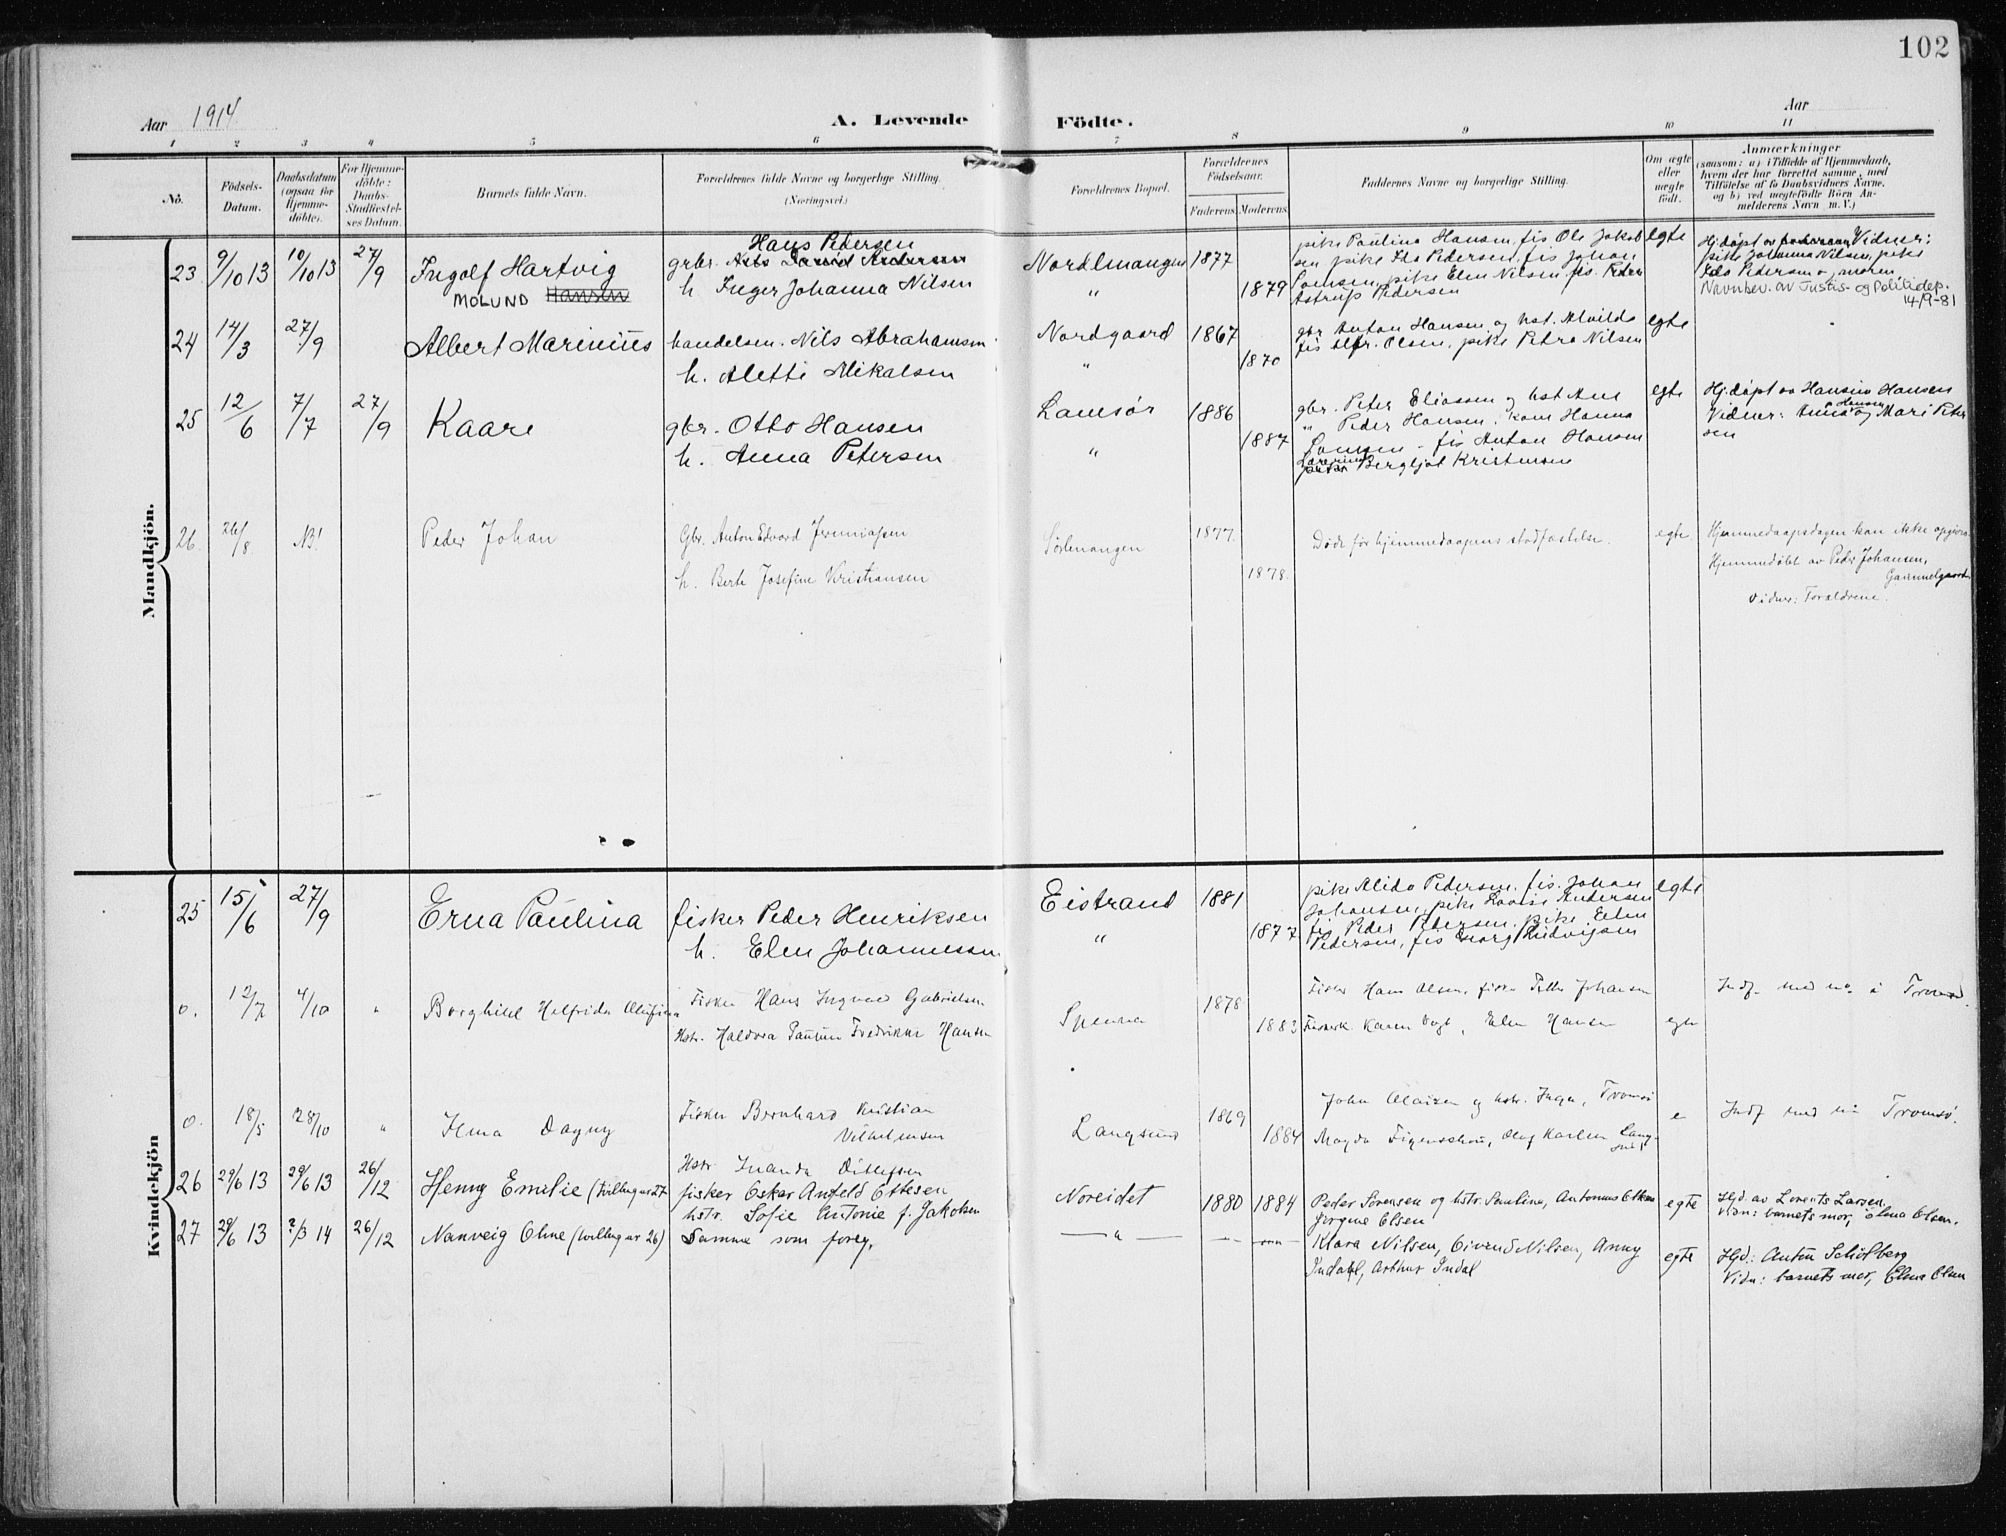 102
Aar 1914 A. Levende Födte. Aar
1 2 3 4 5 6 7 8 9 10 11
No.
Födsels-Datum.
Daabsdatum (ogsaa for Hjemme-döbte).
For Hjemme-döbte: Daabs-Stadfæstel-ses Datum.
Barnets fulde Navn.
Forældrenes fulde Navne og borgerlige Stilling. (Næringsvei)
Forældrenes Bopæl.
Forældrenes Födselsaar.
Faderens. Moderens.
Faddernes Navne og borgerlige Stilling.
Om ægte eller uægte födt.
Anmærkninger
(saasom: a) i Tilfælde af Hjemmedaab,
hvem der har forrettet samme, med
Tilföielse af to Daabsvidners Navne,
og b) ved uægtefödte Börn An-
melderens Navn m. V.)
Mandkjön.
23 9/10 13 10/10 13 27/9 Ingolf Hartvig MOLUND Hansen
Hans Pedersen
grbr.
h. Inger Johanna Nilsen
Nordlmangen 1877
" 1879
pike Paulina Hansen, fis Ole Jakob
sen pike Ida Pedersen, fis Johan
pike Elen Nilsen, fis. Peder
Astrup Pedersen
egte
Hj.døpt av Vidner:
pike Johanna Nilsen, pike
Ida Pedersen og moren
Navnbev. av Justis- og Politidep.
14/9-81
24 14/3 27/9 Albert Marinius
handelsm. Nils Abrahamsen
h. Aletti Mikalsen
Nordgaard 1867
" 1870
gbr Anton Hansen og hst. Alvilde
fis Olsen, pike Petra Nilsen
egte
25 12/6 7/7 27/9 Kaare
gbr. Otto Hansen
h. Anna Petersen
Lanesør 1886
" 1887
gbr. Peter Eliassen og hst Ane
" Peder Hansen, kone Hanna
fis Anton Hansen
Lærerinde Bergljot Kristensen
egte
Hj.døpt av Hansine Hansen
Vidner: Anna Hansen og Mari Peter
sen
26. 26/8 NB! Peder Johan
Gbr. Anton Edvard Jeremiassen
h. Berit Josefine Kristiansen
Sørlenangen 1877.
1878.
Døde før hjemmedaapens stadfæstelse.
egte
Hjemmedaapsdagen kan ikke opgives
Hjemmedøbt av Peder Johansen,
Gammelgaard
Vidner: Forældrene.
Kvindekjön
25 15/6 27/9 Erna Paulina
fisker Peder Henriksen
h. Elen Johannessen
Eistrand 1881
" 1877
pike Alida Pedersen, fis. Johan
Johansen, pike Lovise Andersen
fis Peder Pedersen, pike Elen
Pedersen, fis Georg Ludvigsen
egte
0. 12/7 4/10 " Borghild Halfrida Olufina
Fisker Hans Ingvald Gabrielsen
Hstr. Haldora Pauline Fredrikke Hansen
Spenna 1878
1883
Fisker Hans Olsen, fisker Peter Johansen
Karen Vogt, Elen Hansen
egte
Indf. med no. i Tromsø.
0. 18/5 28/10 " Irma Dagny
Fisker Bernhard Kristian
Vilhelmsen
Hstr. Inanda Ditlefsen
Langsund 1869
1884
John Olaisen og hstr. Inga, Tromsø
Magda Figenschou, Olaf Karlsen Langsund
e
Indf med no Tromsø.
26 29/6 13 29/6 13 26/12 Henny Emilie (tvilling av 27
fisker Oskar Anfeld Ottesen
hstr. Sofie Antonie f. Jakobsen
Noreidet 1880 1884
Peder Sørensen og hstr. Paulina, Antonius Olsen
Jørgine Olsen
egte
Hjd. av Lorents Larsen.
Vidn: barnets mor, Elena Olsen.
27 29/6 13 ?/3 14 26/12 Nanveig Oline (tvilling av 26)
Samme som foreg.
— " — — " — — " —
Klara Nilsen, Eivind Nilsen, Anny
Indahl, Arthur Indal
egte
Hjd: Anton Schjølberg
Vidn: barnets mor, Elena Olsen